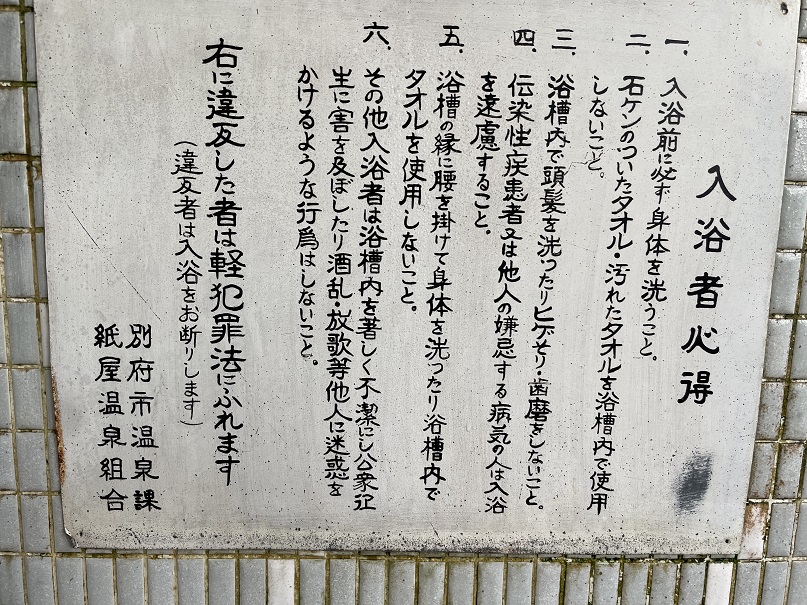 入浴者心得
一、入浴前に必ず身体を洗うこと。
二、石ケンのついたタオル・汚れたタオルを浴槽内で使用
しないこと。
三、浴槽内で頭髪を洗ったりヒゲそり・歯磨をしないこと。
四、伝染性疾患者又は他人の嫌忌する病気の人は入浴
を遠慮すること。
五、浴槽の縁に腰を掛けて身体を洗ったり浴槽内で
タオルを使用しないこと。
六、その他入浴者は浴槽内を著しく不潔にし公衆征
生に害を及ぼしたり酒乱・放歌等他人に迷惑を
かけるような行爲はしないこと。
右に違反した者は軽犯罪法にふれます
(違反者は入浴をお断りします)
別府市温泉課
紙屋温泉組合